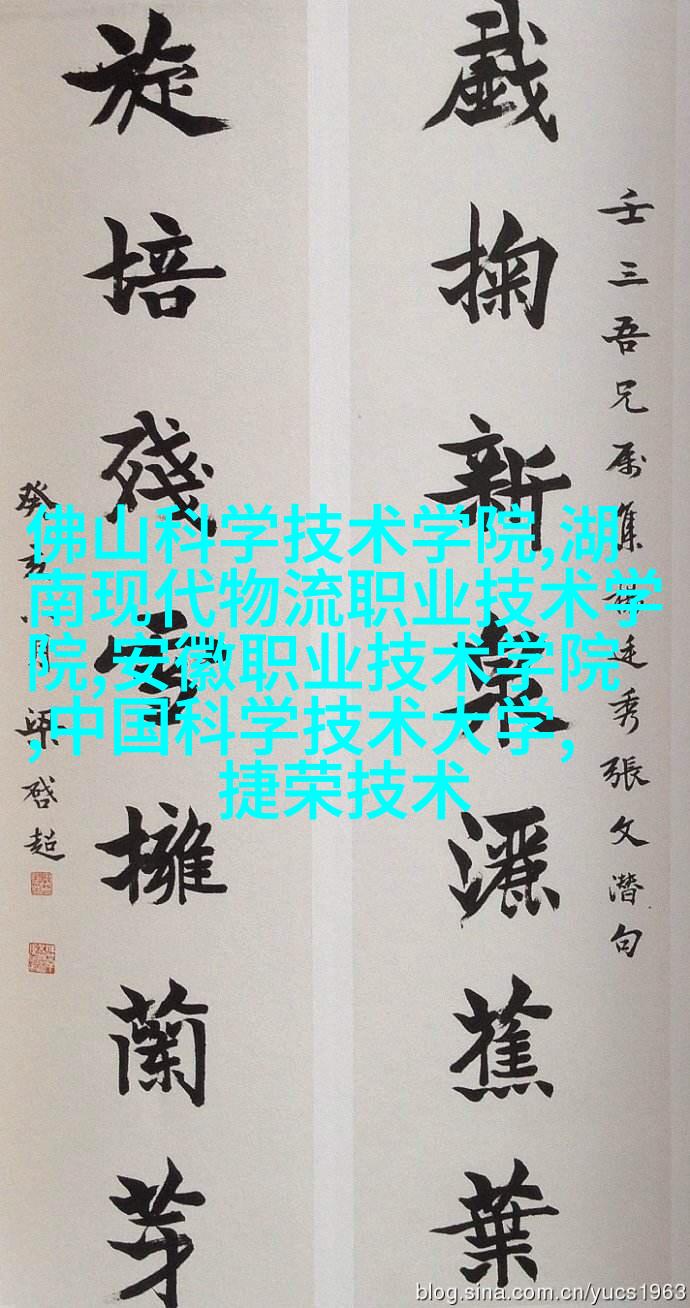 壬三吾兄属集楊廷秀張文潛句
戲掬新泉灑蕉葉
旋培殘雪擁蘭芽
癸亥月梁啓超
佛山科学技术学院,湖
南现代物流职业技术学
院,安徽职业技术学院
,中国科学技术大学,
捷荣技术
blog.sina.com.cn/yucs1963